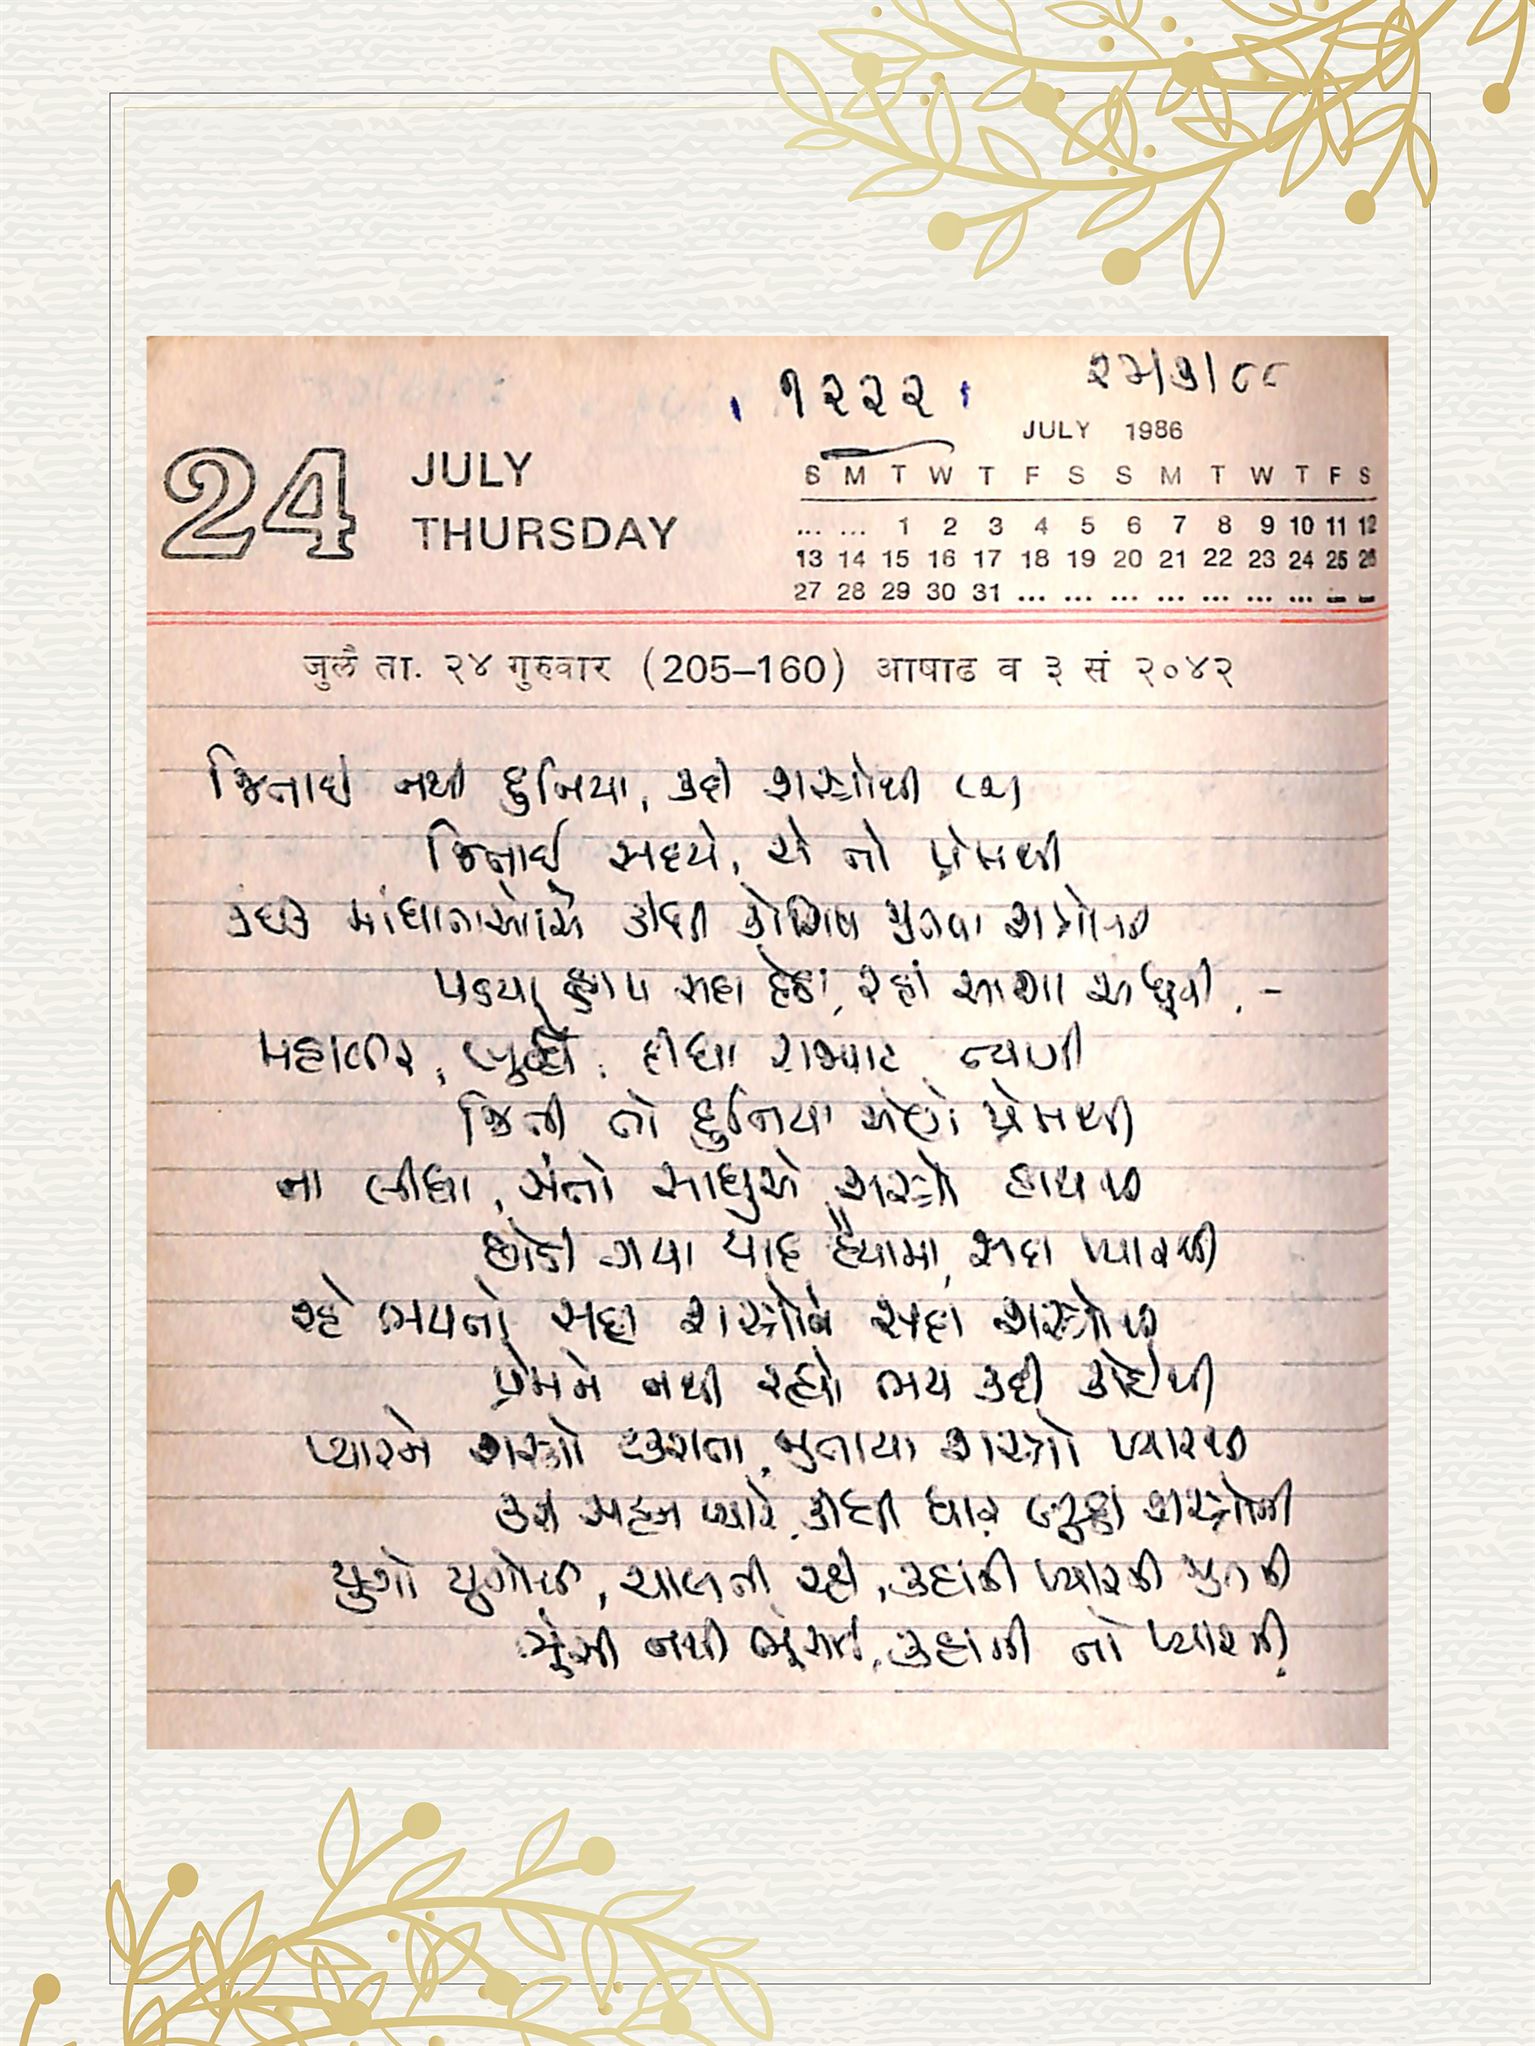 ૧૨૨૨
૨૩/૩/૮૮
24 JULY
THURSDAY
JULY 1986
S M T W T F S S M T W T F S
... ... 1 2 3 4 5 6 7 8 9 10 11 12
13 14 15 16 17 18 19 20 21 22 23 24 25 26
27 28 29 30 31 ... ... ... ... ... ... ... ... ...
जुलै ता. २४ गुरुवार (205–160) आषाढ व ३ सं २०४२
જિતાઈ નથી દુનિયા, કદી શસ્ત્રોથી (૨)
જિતાઈ સદાયે, એ તો પ્રેમથી
કંઈક માંધાતાઓએ કીધી કોશિષ જીતવા શસ્ત્રોથી
પડયા, સદા હેઠાં, રહી આશા અધૂરી. -
મહાવીર, બુદ્ધે, દીધા રાજપાટ ત્યાગી
જિતી તો દુનિયા એણે પ્રેમથી
ના લીધા, સંતો સાધુએ શસ્ત્રો હાથમાં
છોડી ગયા યાદ હૈયામાં, સદા પ્યારની
રહે ભયતો સદા શસ્ત્રોને સદા શસ્ત્રોથી
પ્રેમને નથી રહ્યો ભય કદી કોઈથી
પ્યારને શસ્ત્રો ટકરાતા, જીતાયા શસ્ત્રો પ્યારથી
કરી સહન પ્યારે, કીધી ધાર બુઠ્ઠી શસ્ત્રોની
યુગો યુગોથી, ચાલતી રહી, કહાની પ્યારની જીતની
ભૂંસી નથી ભૂંસાતી, કહાની તો પ્યારની